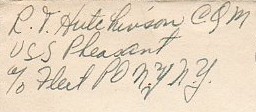 R. T. Hutchinson CQM
USS Pheasant
c/o Fleet PO N.Y. N.Y.